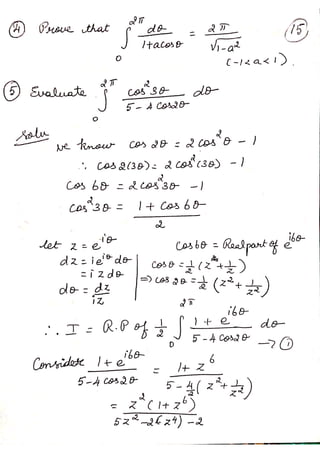 (4) Prove that ∫₀^{2π} dθ/(1+a cosθ) = 2π/√(1-a²) (15)
(-1<a<1).
(5) Evaluate ∫₀^{2π} cos²3θ/(5-4cos2θ) dθ
Solu
We know cos 2θ = 2cos²θ - 1
∴ cos 2(3θ) = 2cos²(3θ) - 1
Cos 6θ = 2cos²3θ - 1
Cos²3θ = (1 + Cos 6θ)/2
let z = e^{iθ} Cos6θ = Real part of e^{i6θ}
dz = ie^{iθ} dθ Cosθ = 1/2 (z + 1/z)
= i z dθ ⇒ Cos 2θ = 1/2 (z² + 1/z²)
dθ = dz/iz
∴ I = R.P of 1/2 ∫₀^{2π} (1 + e^{i6θ})/(5-4cos2θ) dθ → (1)
Consider (1+e^{i6θ})/(5-4cos2θ) = (1+z⁶)/(5-4/2(z²+1/z²))
= z²(1+z⁶)/(5z²-2(z⁴)-2)